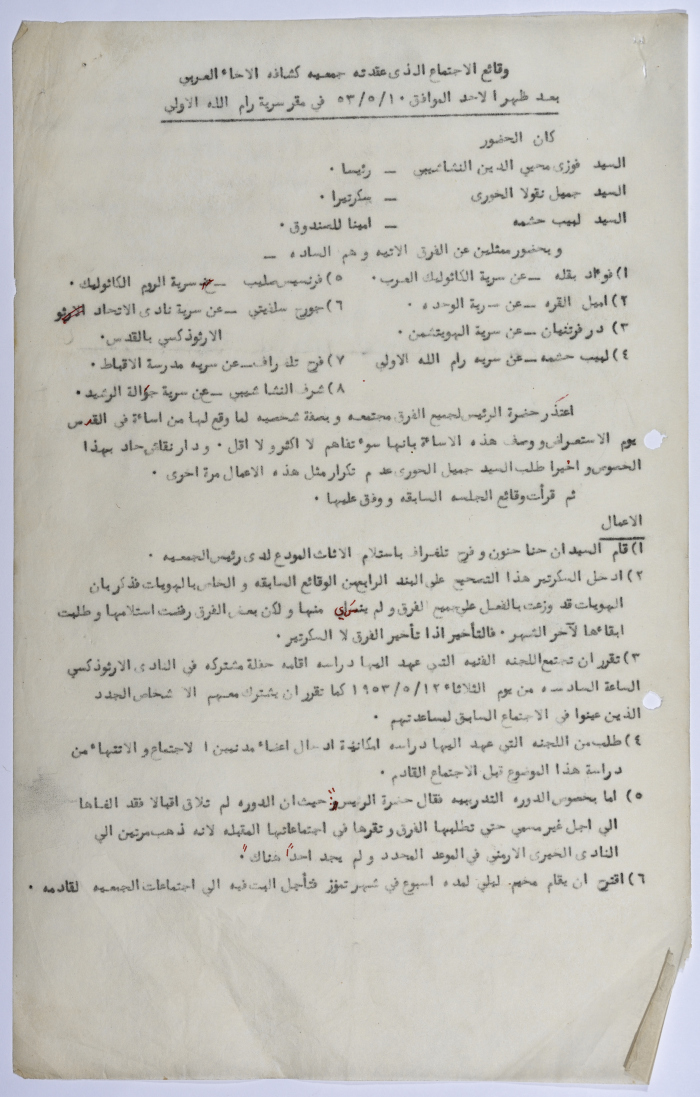 وقائع الاجتماع الذى عقدته جمعيه كشافه الاخاء العربي
بعد ظهر الاحد الموافق ٥٣/٥/١٠ في مقر سرية رام الله الاولي
كان الحضور
السيد فوزى محيي الدين النشاشيبي ــ رئيسا ٠
السيد جميل نقولا الخورى ــ سكرتيرا ٠
السيد لبيب حشمه ــ امينا للصندوق ٠
و بحضور ممثلين عن الفرق الاتيه و هم الساده ــ
١) فو٤اد بقله ــ عن سرية الكاثوليك العرب٠ ٥) فرنسيس صليب ــ سرية الروم الكاثوليك ٠
٢) اميل القره ــ عن سرية الوحده ٠ ٦) جورج سلفيتي ــ عن سرية نادى الاتحاد
الارثوذكسي بالقدس٠
٣) در فرتنيان ــ عن سرية الهويتشمن ٠
٤) لبيب حشمه ــ عن سريه رام الله الاولي ٧) فرح تلغراف ــ عن سريه مدرسة الاقباط ٠
٨) شرف النشاشيبي ــ عن سرية جوالة الرشيد ٠
اعتذر حضرة الرئيس لجميع الفرق مجتمعه و بصفة شخصيه لما وقع لها من اساءة في القدس
يوم الاستعراض و وصف هذه الاساءة بانها سوء تفاهم لا اكثر و لا اقل ٠ و دار نقاش حاد بهذا
الخصوص و اخيرا طلب السيد جميل الخورى عدم تكرار مثل هذه الاعمال مرة اخرى ٠
ثم قرأت وقائع الجلسه السابقه و وفق عليها ٠
الاعمال
١) قام السيدان حنا حنون و فرح تلغراف باستلام الاثاث المودع لدى رئيس الجمعيه ٠
٢) ادخل السكرتير هذا التصحيح على البند الرابع من الوقائع السابقه و الخاص بالهويات فذكر بان
الهويات قد وزعت بالفعل على جميع الفرق و لم منها و لكن بعض الفرق رفضت استلامها و طلبت
ابقاءها لآخر الشهر ٠ فالتأخير اذا تأخير الفرق لا السكرتير ٠
٣) تقرر ان تجتمع اللجنه الفنيه التي عهد اليها دراسه اقامه حفلة مشتركه في النادى الارثوذكسي
الساعة السادسه من يوم الثلاثاء ١٩٥٣/٥/١٢ كما تقرر ان يشترك معهم الاشخاص الجدد
الذين عينوا في الاجتماع السابق لمساعدتهم ٠
٤) طلب من اللجنه التي عهد اليها دراسه امكانية ادخال اعضاء مدنيين الاجتماع و الانتهاء من
دراسة هذا الموضوع قبل الاجتماع القادم ٠
٥) اما بخصوص الدوره التدريبيه فقال حضرة الرئيس " حيث ان الدوره لم تلاق اقبالا فقد الغاها
الى اجل غير مسمى حتى تطلبها الفرق و تقرها في اجتماعاتها المقبله لانه ذهب مرتين الي
النادى الخيرى الارمني في الموعد المحدد و لم يجد احداً هناك" ٠
٦) اقترح ان يقام مخيم ليلي لمده اسبوع في شهر تموز فتأجل البت فيه الى اجتماعات الجمعيه لقادمه ٠